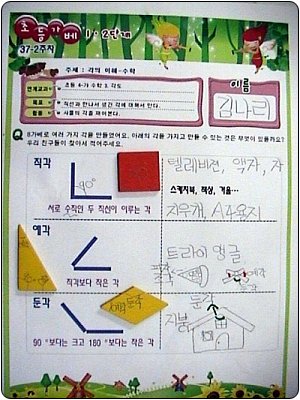 초등가베 1·2단계
37-2주차
주제 : 각의 이해-수학
연계교과 초등 4-가 수학 3. 각도
목표 직선과 만나서 생긴 각에 대해서 안다.
활동 사물의 각을 찾아본다.
이름
김나리
Q 8가베로 여러 가지 각을 만들었어요. 아래의 각을 가지고 만들 수 있는 것은 무엇이 있을까요?
우리 친구들이 찾아서 적어주세요.
직각
90°
서로 수직인 두 직선이 이루는 각
텔레비젼, 액자, 자
스케치북, 책상, 거울...
지우개, A4용지
예각
직각보다 작은 각
트라이앵글
예각
둔각
예각
둔각
90°보다는 크고 180°보다는 작은 각
둔각
지붕